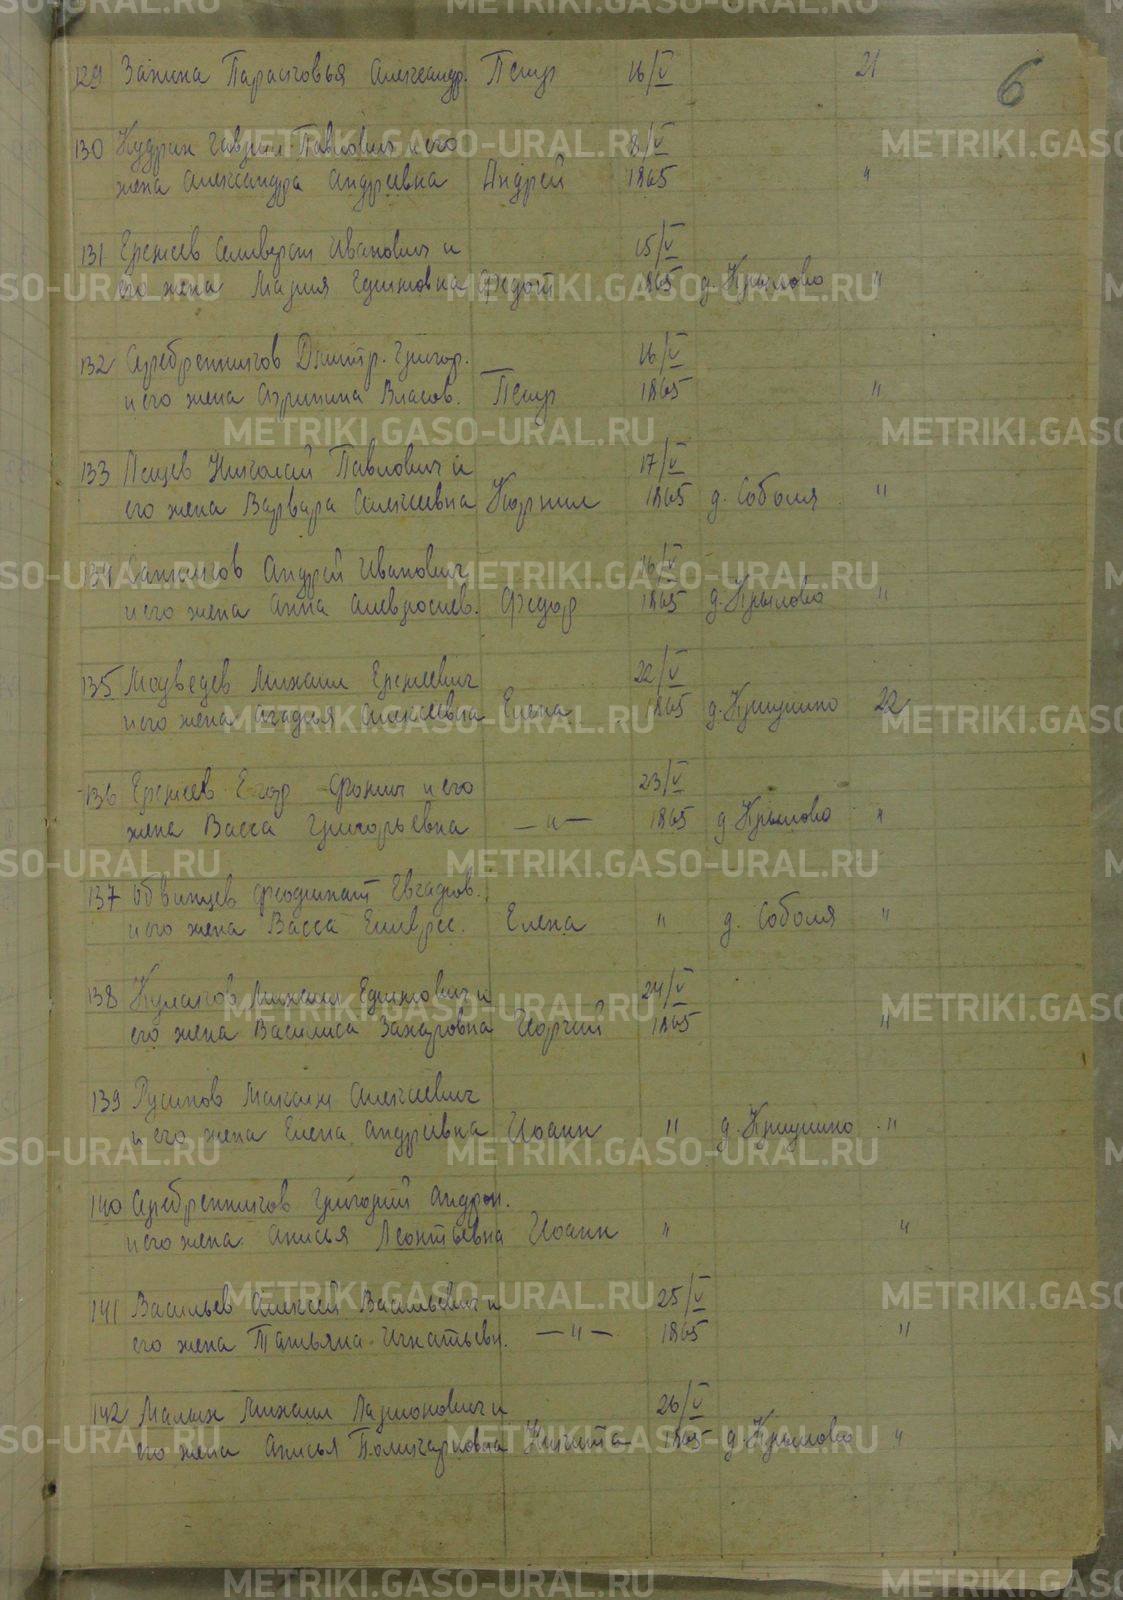 6
129 Занина Парасковья Александр. Петр 16/V 21
130 Кудрин Гаврил Павлович и его 8/V
жена Александра Андреевна Андрей 1865 "
131 Еремеев Селиверст Иванович и 15/V
его жена Мария Ефимовна Федот 1865 д. Крылово "
132 Серебренников Дмитр. Григор. 16/V
и его жена Агрипина Власов. Петр 1865 "
133 Пащев Николай Павлович и 17/V
его жена Варвара Алексеевна Корнил 1865 д. Соболя "
134 Санников Андрей Иванович 16/V
и его жена Анна Амвросиев. Федор 1865 д. Крылово "
135 Медведев Михаил Еремеевич 22/V
и его жена Агафья Алексеевна Елена 1865 д. 22
136 Еремеев Егор Фомич и его 23/V
жена Васса Григорьевна — " — 1865 д Крылово "
137 Обвинцев Евграфов.
и его жена Васса Елена " д. Соболя "
138 Кулаков Михаил Ефимович и 24/V
его жена Василиса Захаровна Георгий 1865 "
139 Русинов Максим Алексеевич
и его жена Елена Андреевна Иоанн " д. "
140 Серебренников Григорий Андрон.
и его жена Анисья Леонтьевна Иоанн " "
141 Васильев Алексей Васильевич и 25/V
его жена Татьяна Игнатьевн. — " — 1865 "
142 Малых Михаил Ларионович и 26/V
его жена Анисья Поликарповна Никита 1865 д. Крылово "
METRIKI.GASO-URAL.RU